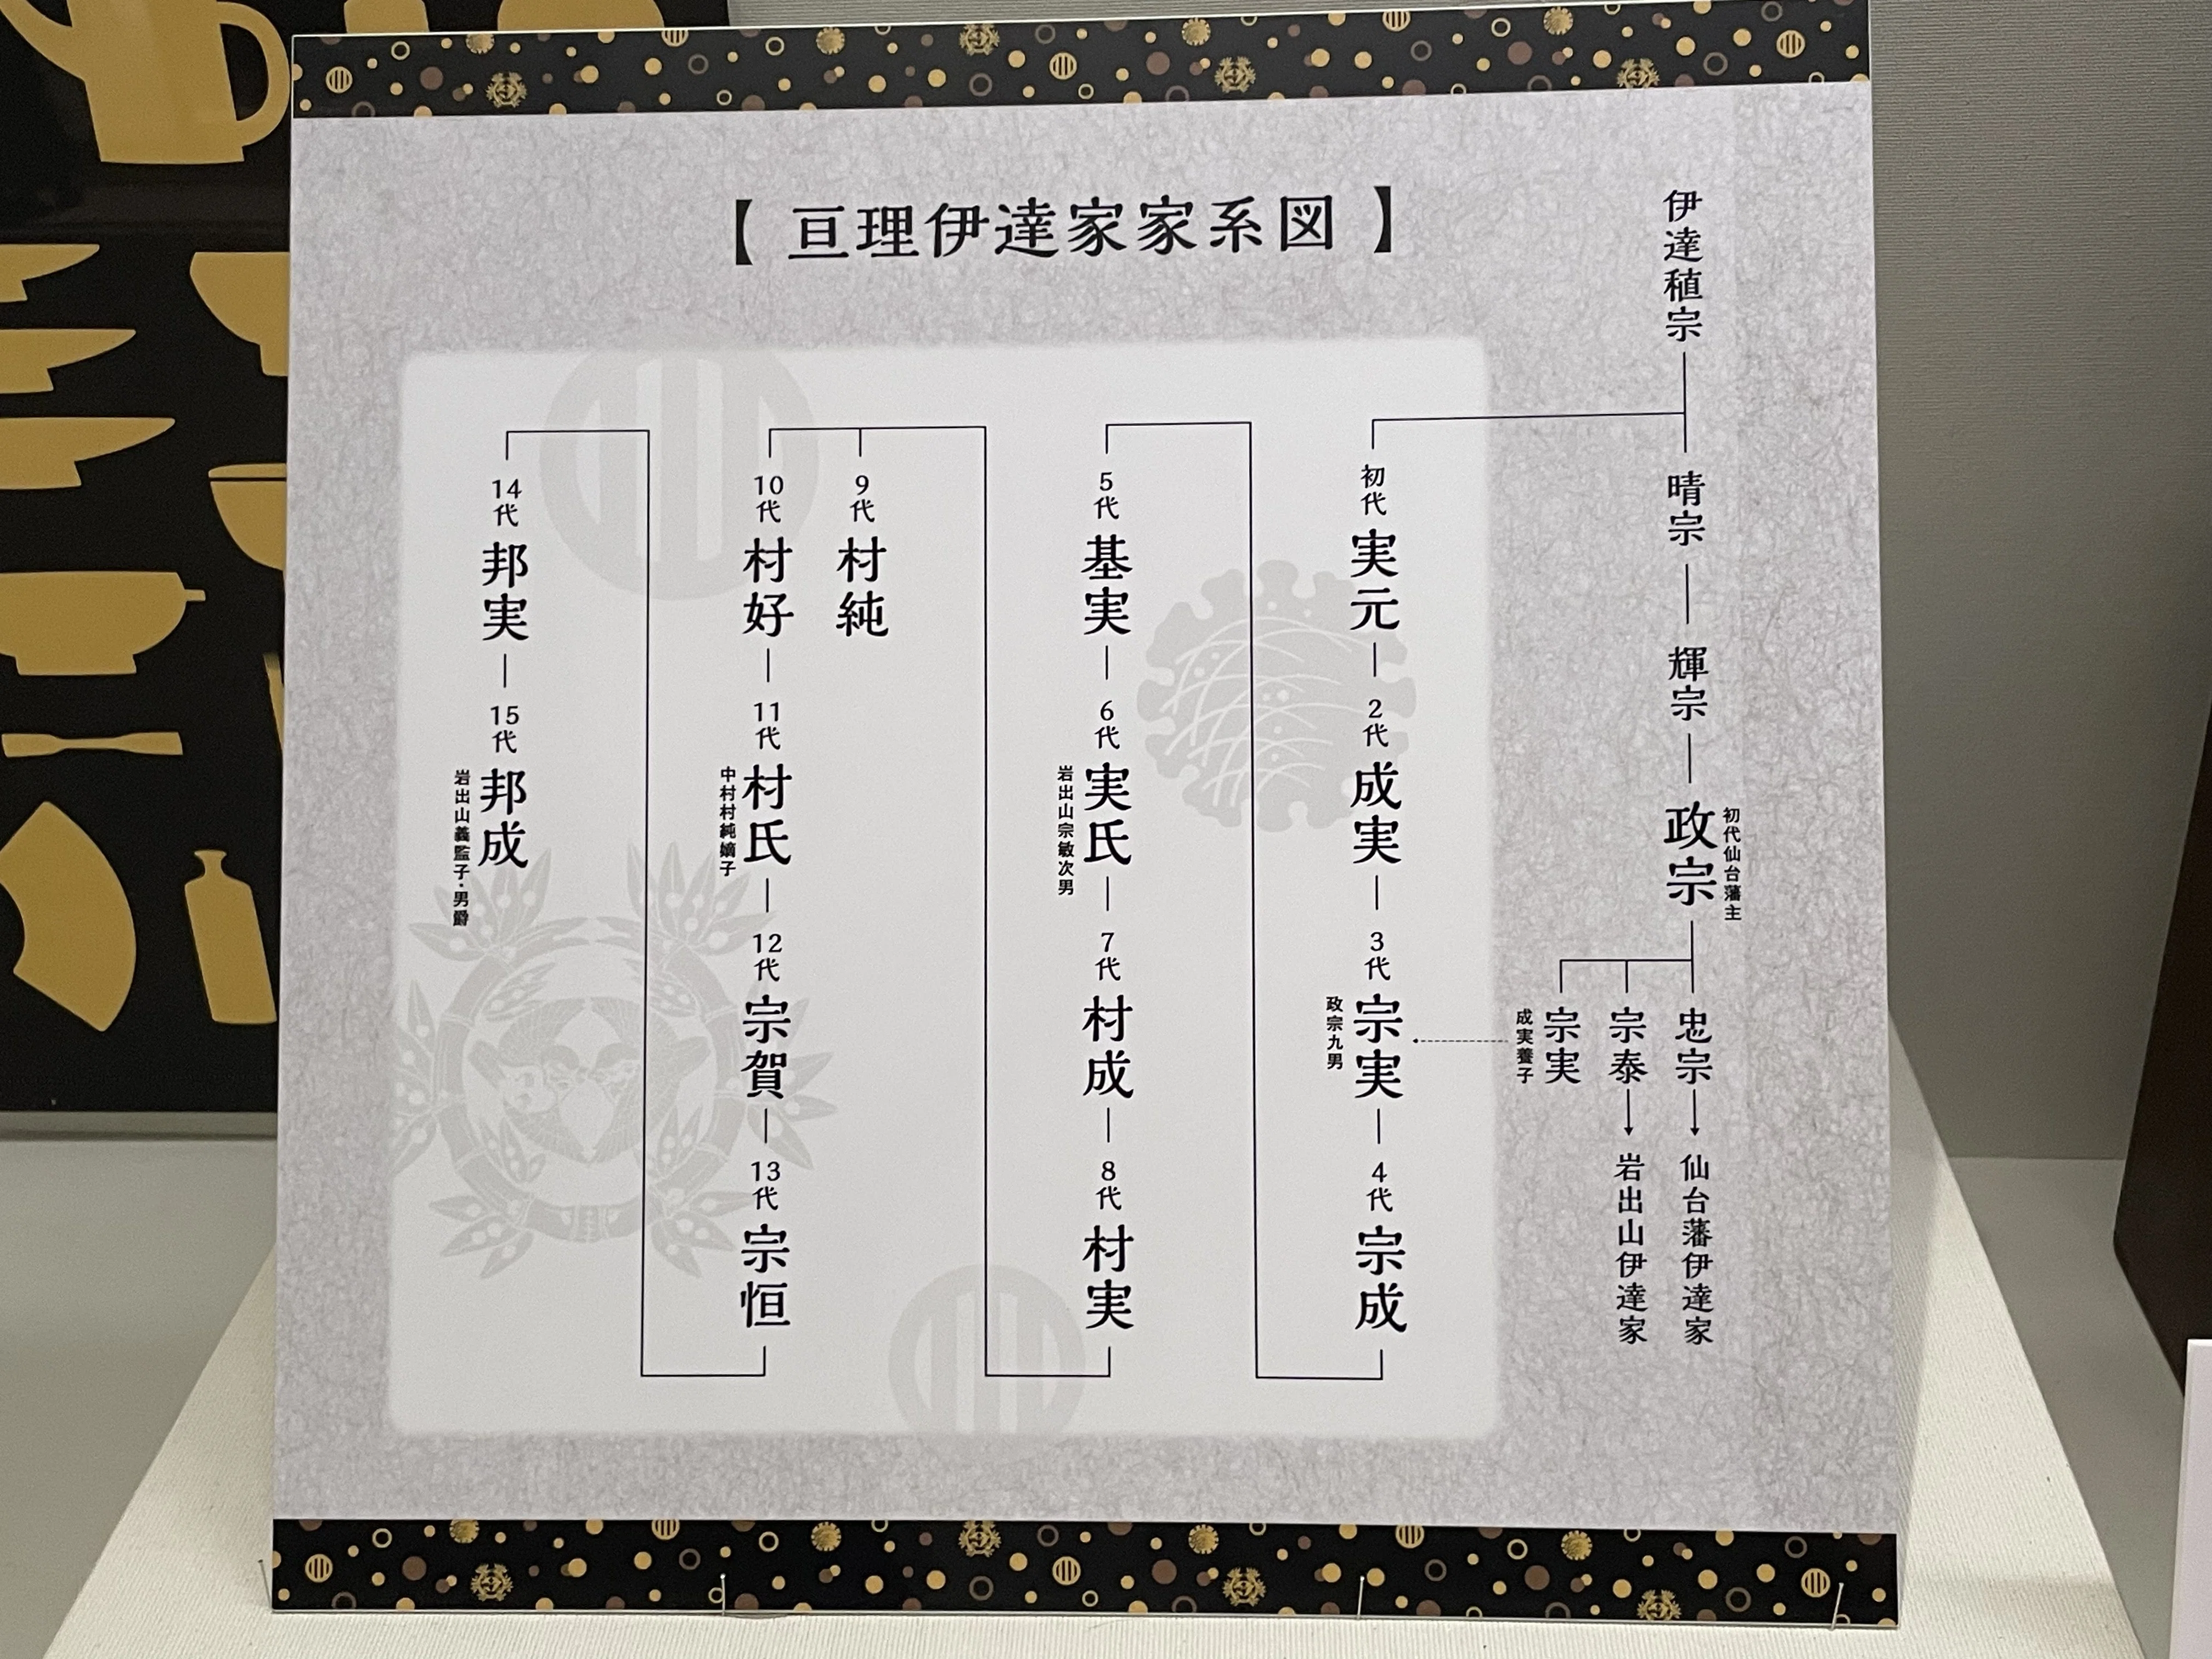 【 亘理伊達家家系図 】
伊達稙宗
晴宗
輝宗
政宗
初代仙台藩主
忠宗
仙台藩伊達家
宗泰
岩出山伊達家
宗実
成実養子
初代
実元
2代
成実
3代
宗実
政宗九男
4代
宗成
5代
基実
6代
実氏
岩出山宗敏次男
7代
村成
8代
村実
9代
村純
10代
村好
11代
村氏
中村村純嫡子
12代
宗賀
13代
宗恒
14代
邦実
15代
邦成
岩出山義監子・男爵